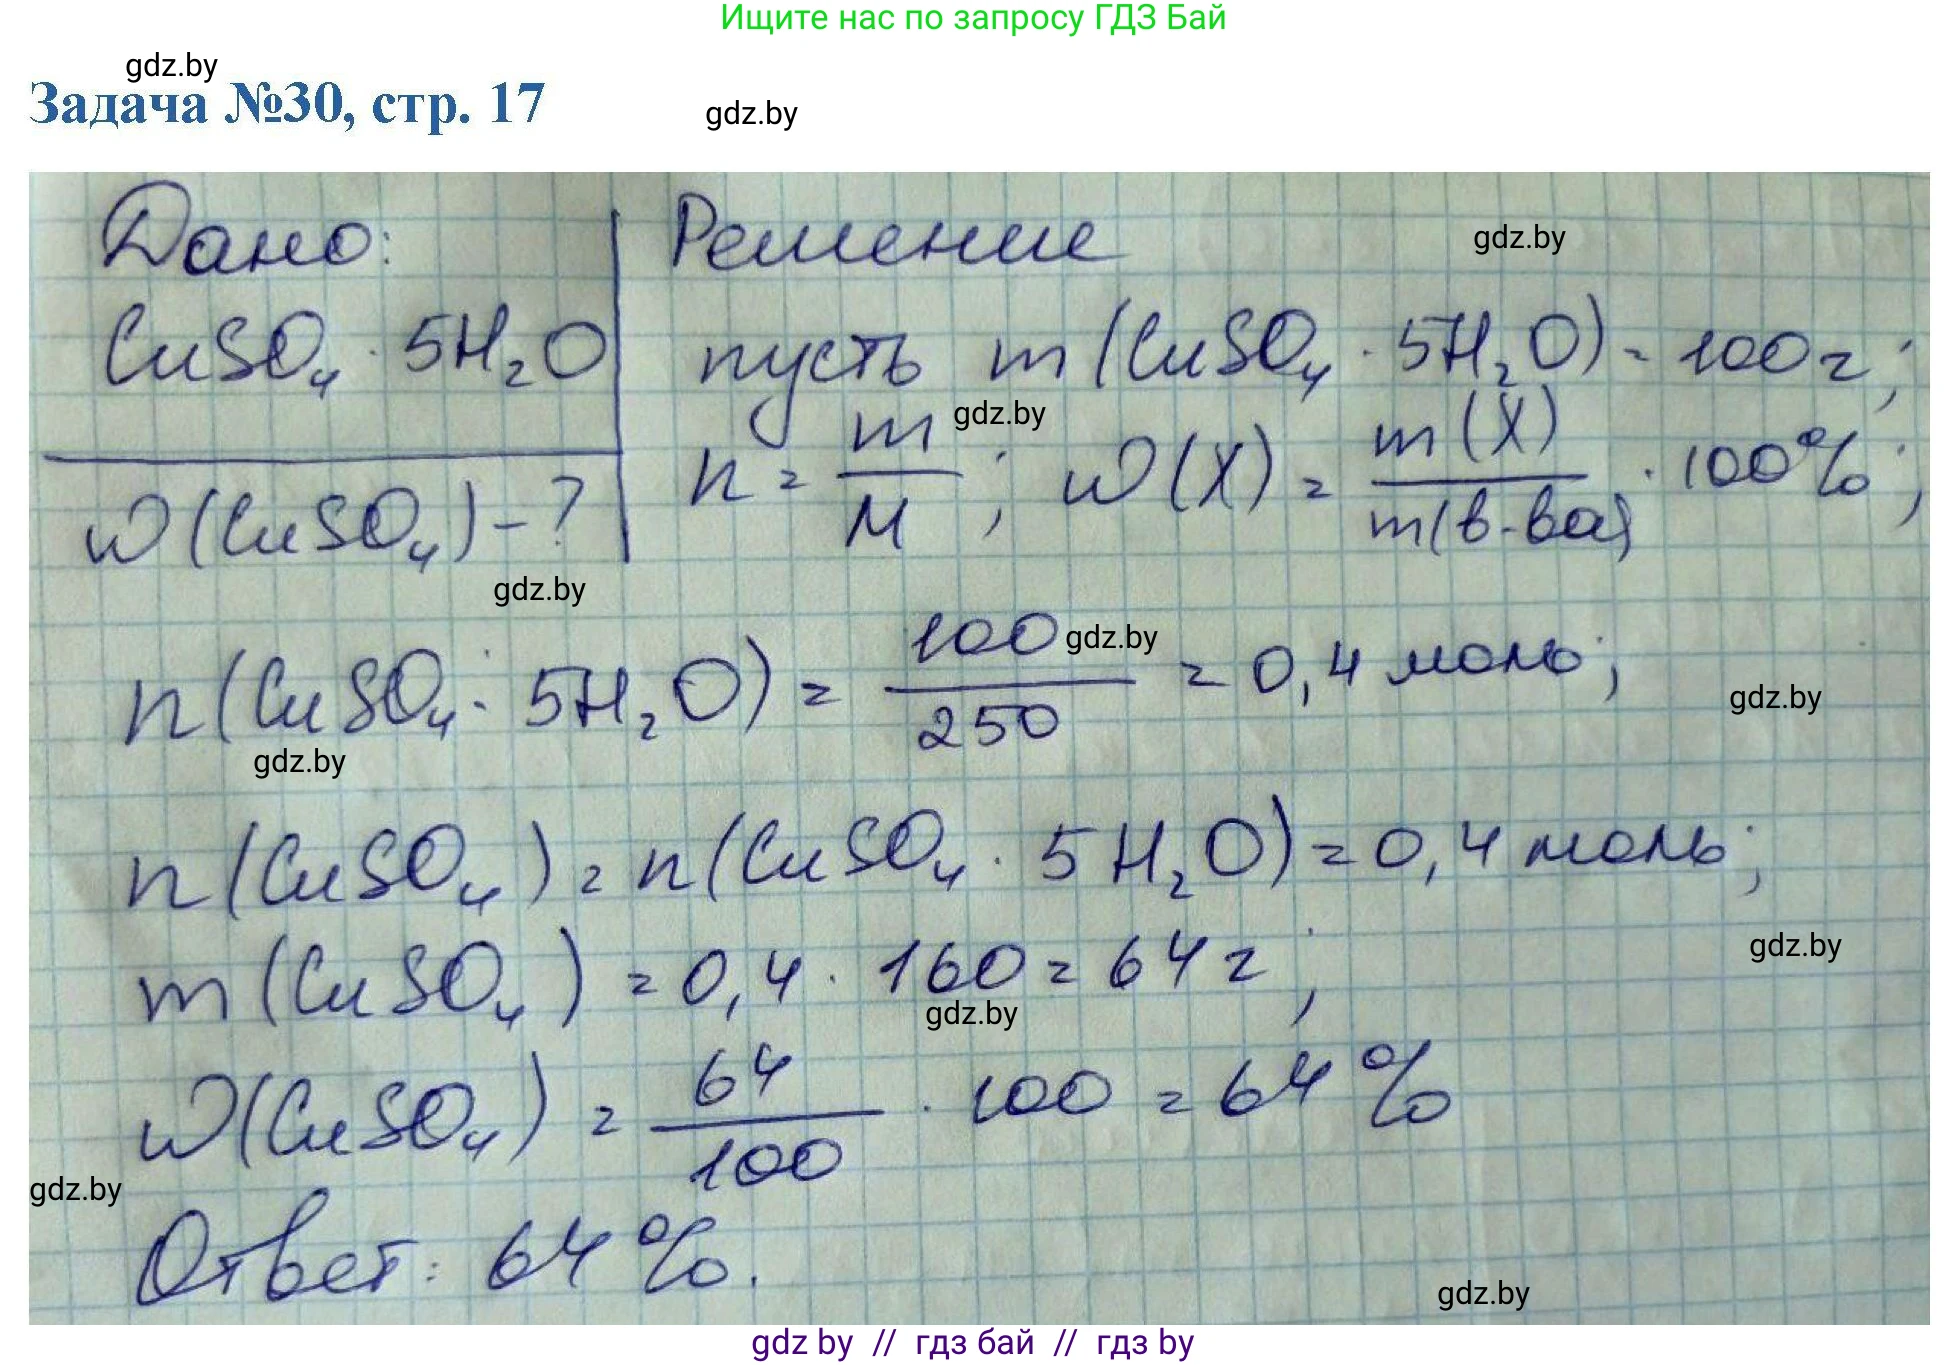 Ищите нас по запросу ГДЗ Бай
gdz.by
Задача №30, стр. 17
gdz.by
Дано:
CuSO₄ · 5H₂O
w(CuSO₄) - ?
Решение
gdz.by
пусть m(CuSO₄ · 5H₂O) = 100 г;
gdz.by
n = m/M ; w(X) = m(X)/m(в-ва) · 100%;
gdz.by
n(CuSO₄ · 5H₂O) = 100/250 = 0,4 моль;
gdz.by
gdz.by
gdz.by
n(CuSO₄) = n(CuSO₄ · 5H₂O) = 0,4 моль;
gdz.by
m(CuSO₄) = 0,4 · 160 = 64 г;
gdz.by
w(CuSO₄) = 64/100 · 100 = 64 %
gdz.by
Ответ: 64 %.
gdz.by
gdz by // гдз бай // гдз by